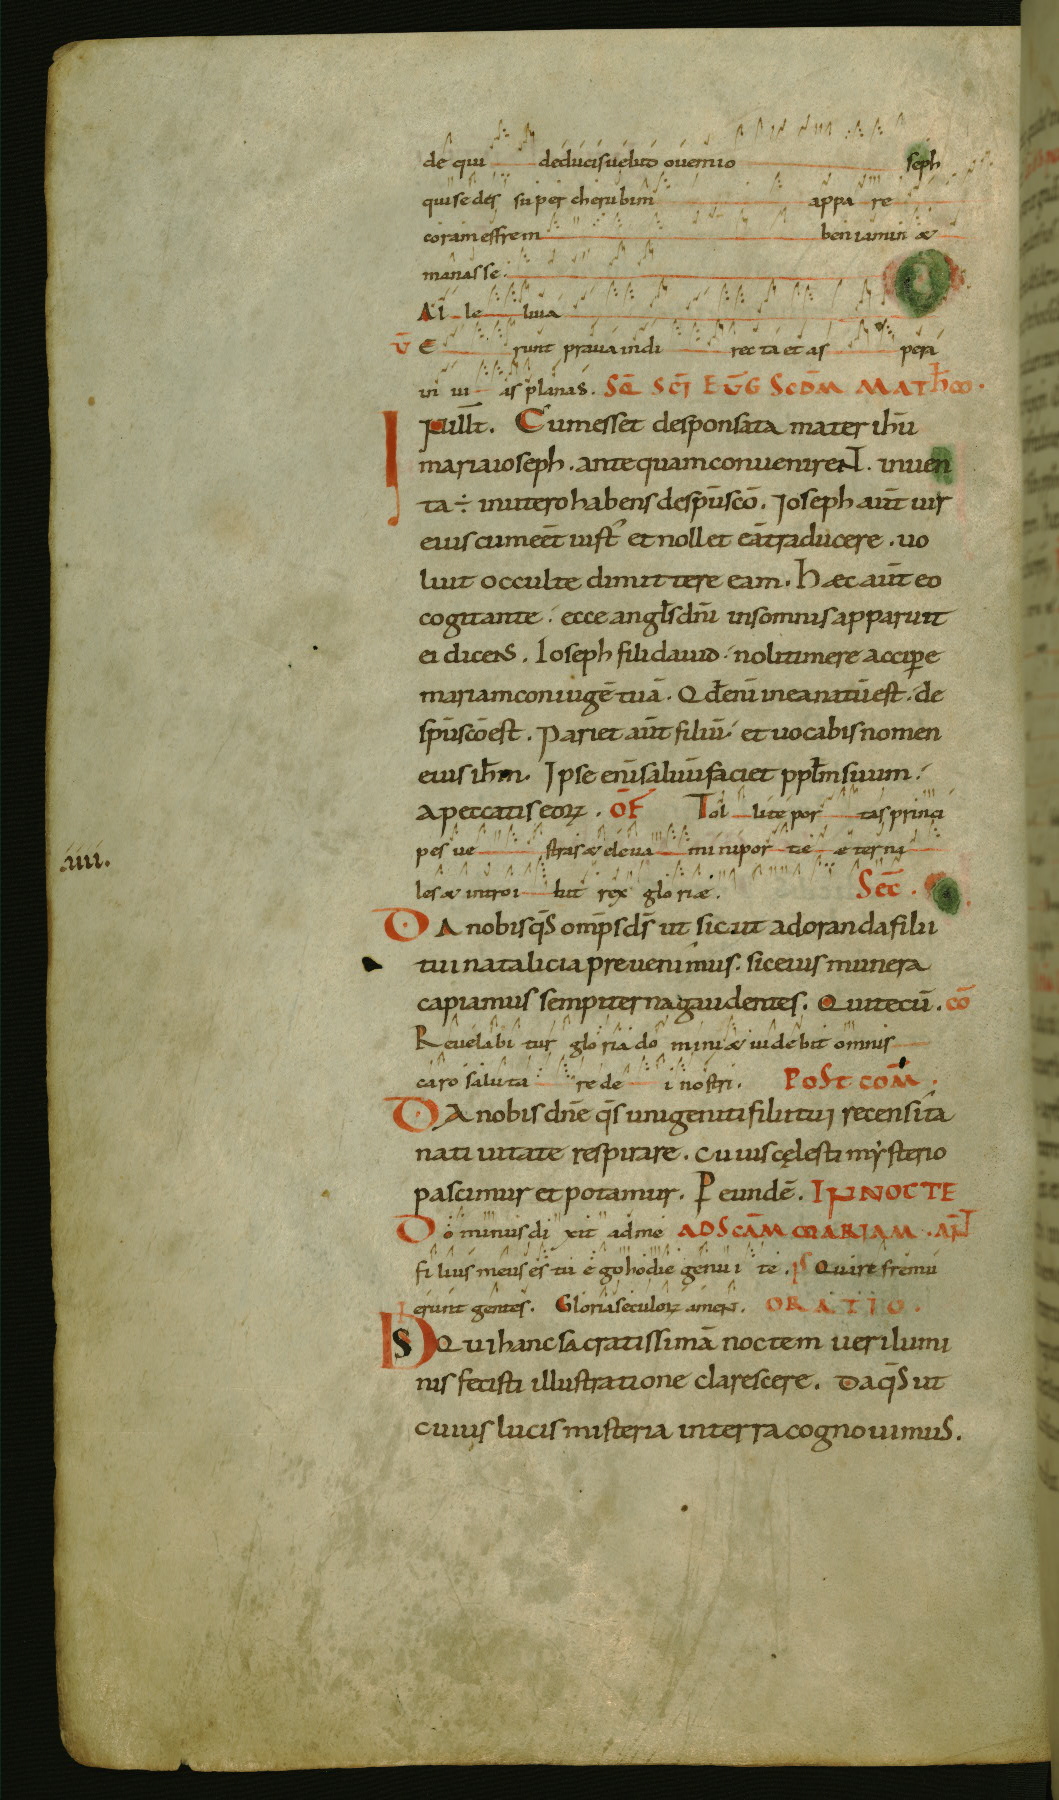 de qui deducis uelut ouem io seph
qui sedes super cherubim appa re
coram effrem beniamin &
manasse.
Al le luia
V̄ E runt praua in di recta et as pera
in ui as planas. SEQ̄ SCĪ EUG̅ SCDM̄ MATH̄
In illt̄. Cum esset desponsata mater ih̄u
maria ioseph. antequam conuenirent. inuen
ta ÷ in utero habens de sp̄u scō. Ioseph aūt uir
eius cum eēt iust' et nollet eā traducere. uo
luit occulte dimittere eam. Haec aūt eo
cogitante. ecce angl̄s dn̄i in somnis apparuit
ei dicens. Ioseph fili dauid. noli timere accipere
mariam coniugē tuā. Qd̄ enī in ea natū est. de
sp̄u scō est. Pariet aūt filiū. et uocabis nomen
eius ih̄m. Ipse enī saluū faciet ppl̄m suum.
a peccatis eoꝝ. OF̄ Tol lite por tas princi
pes ue stras & eleua mini por tae aeterna
les & introi bit rex gloriae. Sec̄.
DA nobis q̄s omp̄s ds̄ ut sicut adoranda filii
tui natalicia preuenimus. sic eius munera
capiamus sempiterna gaudentes. Qui tecū. cō
Reuelabi tur gloria do mini & uidebit omnis
caro saluta re de i nostri. POST COM̄.
DA nobis dn̄e q̄s unigeniti filii tui recensita
natiuitate respirare. cuius cęlesti mysterio
pascimur et potamur. P eundē. IN NOCTE
Dominus di xit ad me AD SCĀM MARIAM. AN̄T
fi lius meus es tu ego hodie genui te. PS Quare fremu
erunt gentes. Gloria seculoꝝ amen. ORATIO.
DS Qui hanc sacratissimā noctem ueri lumi
nis fecisti illustratione clarescere. Da q̄s ut
cuius lucis misteria in terra cognouimus.
.iiii.